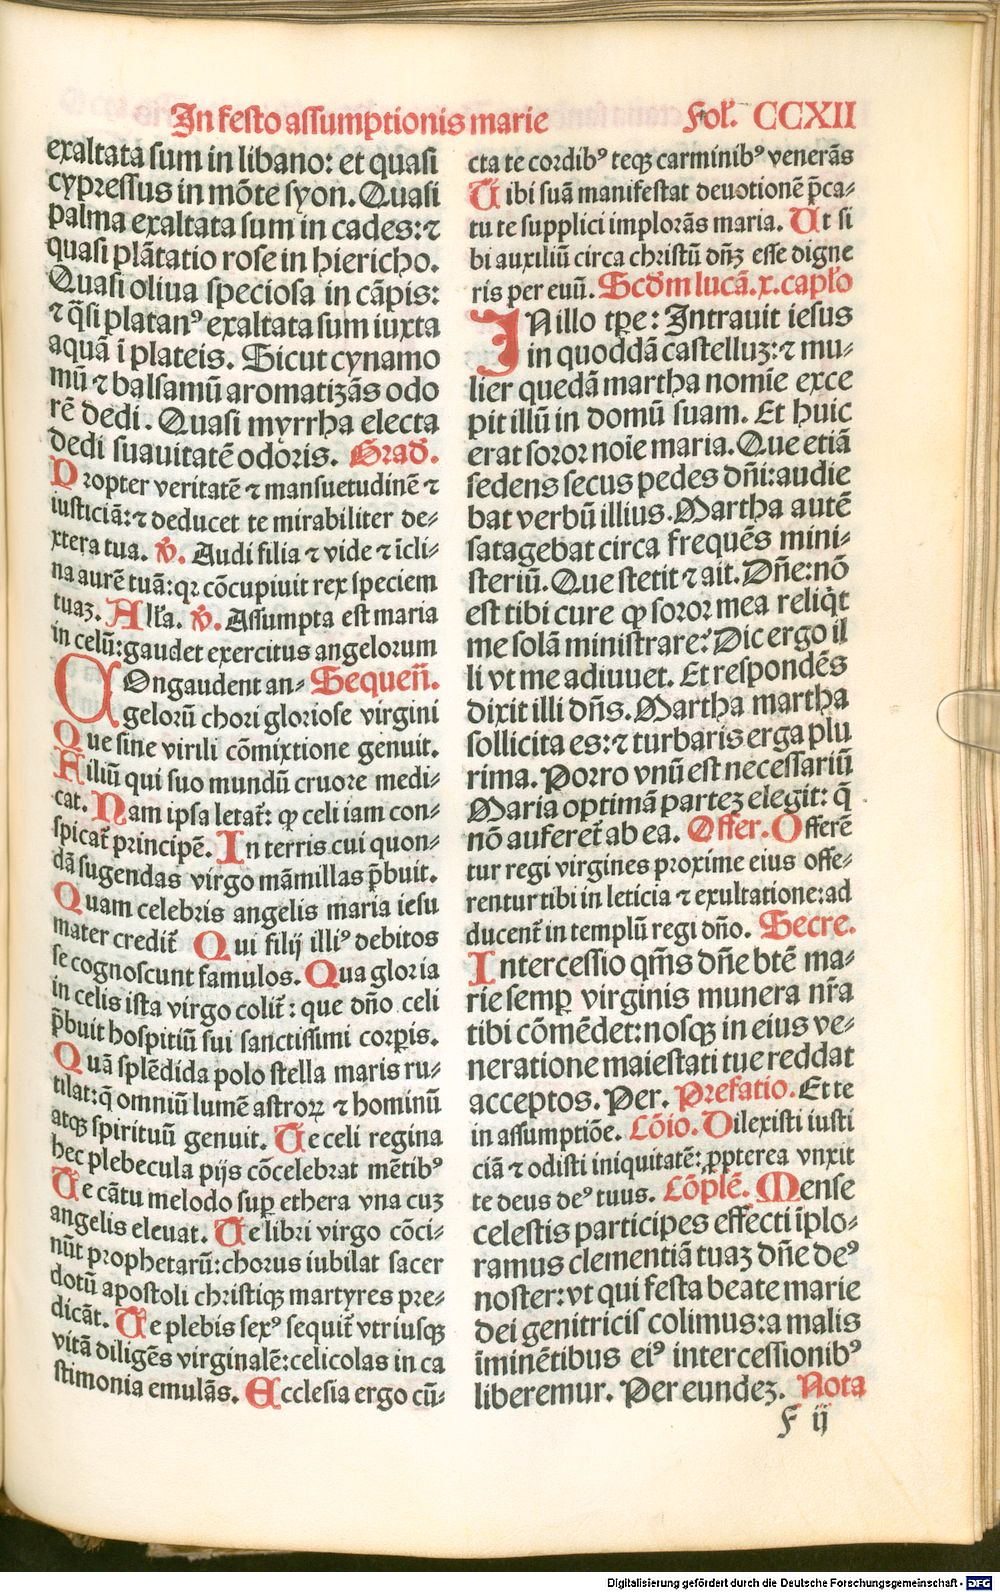 In festo assumptionis marie Folˀ. CCXII
exaltata sum in libano: et quasi
cypressus in mōte syon. Quasi
palma exaltata sum in cades: ⁊
quasi plātatio rose in hiericho.
Quasi oliua speciosa in cāpis:
⁊ q̄si platanꝰ exaltata sum iuxta
aquā ī plateis. Sicut cynamo
mū ⁊ balsamū aromatizās odo
rē dedi. Quasi myrrha electa
dedi suauitatē odoris. Grad̛.
Propter veritatē ⁊ mansuetudinē ⁊
iusticiā: ⁊ deducet te mirabiliter de⸗
xtera tua. ℣. Audi filia ⁊ vide ⁊ īcli⸗
na aurē tuā: qꝛ cōcupiuit rex speciem
tuaꝫ. Alľa. ℣. Assumpta est maria
in celū: gaudet exercitus angelorum
COngaudent an⸗ Sequen̄.
gelorū chori gloriose virgini
Que sine virili cōmixtione genuit.
Filiū qui suo mundū cruore medi⸗
cat. Nam ipsa letat᷑: ꝙ celi iam con⸗
spicat᷑ principē. In terris cui quon⸗
dā sugendas virgo māmillas p̄buit.
Quam celebris angelis maria iesu
mater credit᷑ Qui filij illiꝰ debitos
se cognoscunt famulos. Qua gloria
in celis ista virgo colit᷑: que dn̄o celi
p̄buit hospitiū sui sanctissimi corꝑis.
Quā splēdida polo stella maris ru⸗
tilat: q̄ omniū lumē astroꝝ ⁊ hominū
atqꝫ spirituū genuit. Te celi regina
hec plebecula pijs cōcelebrat mētibꝰ
Te cātu melodo suꝑ ethera vna cuꝫ
angelis eleuat. Te libri virgo cōci⸗
nūt prophetarū: chorus iubilat sacer
dotū apostoli christiqꝫ martyres pre⸗
dicāt. Te plebis sexꝰ sequit᷑ vtriusqꝫ
vitā diligēs virginalē: celicolas in ca
stimonia emulās. Ecclesia ergo cū⸗
cta te cordibꝰ teqꝫ carminibꝰ venerās
Tibi suā manifestat deuotionē p̄ca⸗
tu te supplici implorās maria. Ut si
bi auxiliū circa christū dn̄ꝫ esse digne
ris per euū. Scd̛m lucā. x. capľo
IN illo tꝑe: Intrauit iesus
in quoddā castelluꝫ: ⁊ mu⸗
lier quedā martha nomīe exce
pit illū in domū suam. Et huic
erat soror noīe maria. Que etiā
sedens secus pedes dn̄i: audie
bat verbū illius. Martha autē
satagebat circa frequēs mini⸗
steriū. Que stetit ⁊ ait. Dn̄e: nō
est tibi cure ꝙ soror mea reliq̇t
me solā ministrare? Dic ergo il
li vt me adiuuet. Et respondēs
dixit illi dn̄s. Martha martha
sollicita es: ⁊ turbaris erga plu
rima. Porro vnū est necessariū
Maria optimā parteꝫ elegit: q̄
nō auferet᷑ ab ea. Offer. Offerē
tur regi virgines proxime eius offe⸗
rentur tibi in leticia ⁊ exultatione: ad
ducent᷑ in templū regi dn̄o. Secre.
Intercessio qm̄s dn̄e btē ma⸗
rie semꝑ virginis munera nr̄a
tibi cōmēdet: nosqꝫ in eius ve⸗
neratione maiestati tue reddat
acceptos. Per. Prefatio. Et te
in assumptiōe. Cōīo. Dilexisti iusti
ciā ⁊ odisti iniquitatē: ꝓpterea vnxit
te deus deꝰ tuus. Cōplē. Mense
celestis participes effecti īplo⸗
ramus clementiā tuaꝫ dn̄e deꝰ
noster: vt qui festa beate marie
dei genitricis colimus: a malis
īminētibus eiꝰ intercessionibꝰ
liberemur. Per eundeꝫ. Nota
F ij
Digitalisierung gefördert durch die Deutsche Forschungsgemeinschaft - DFG